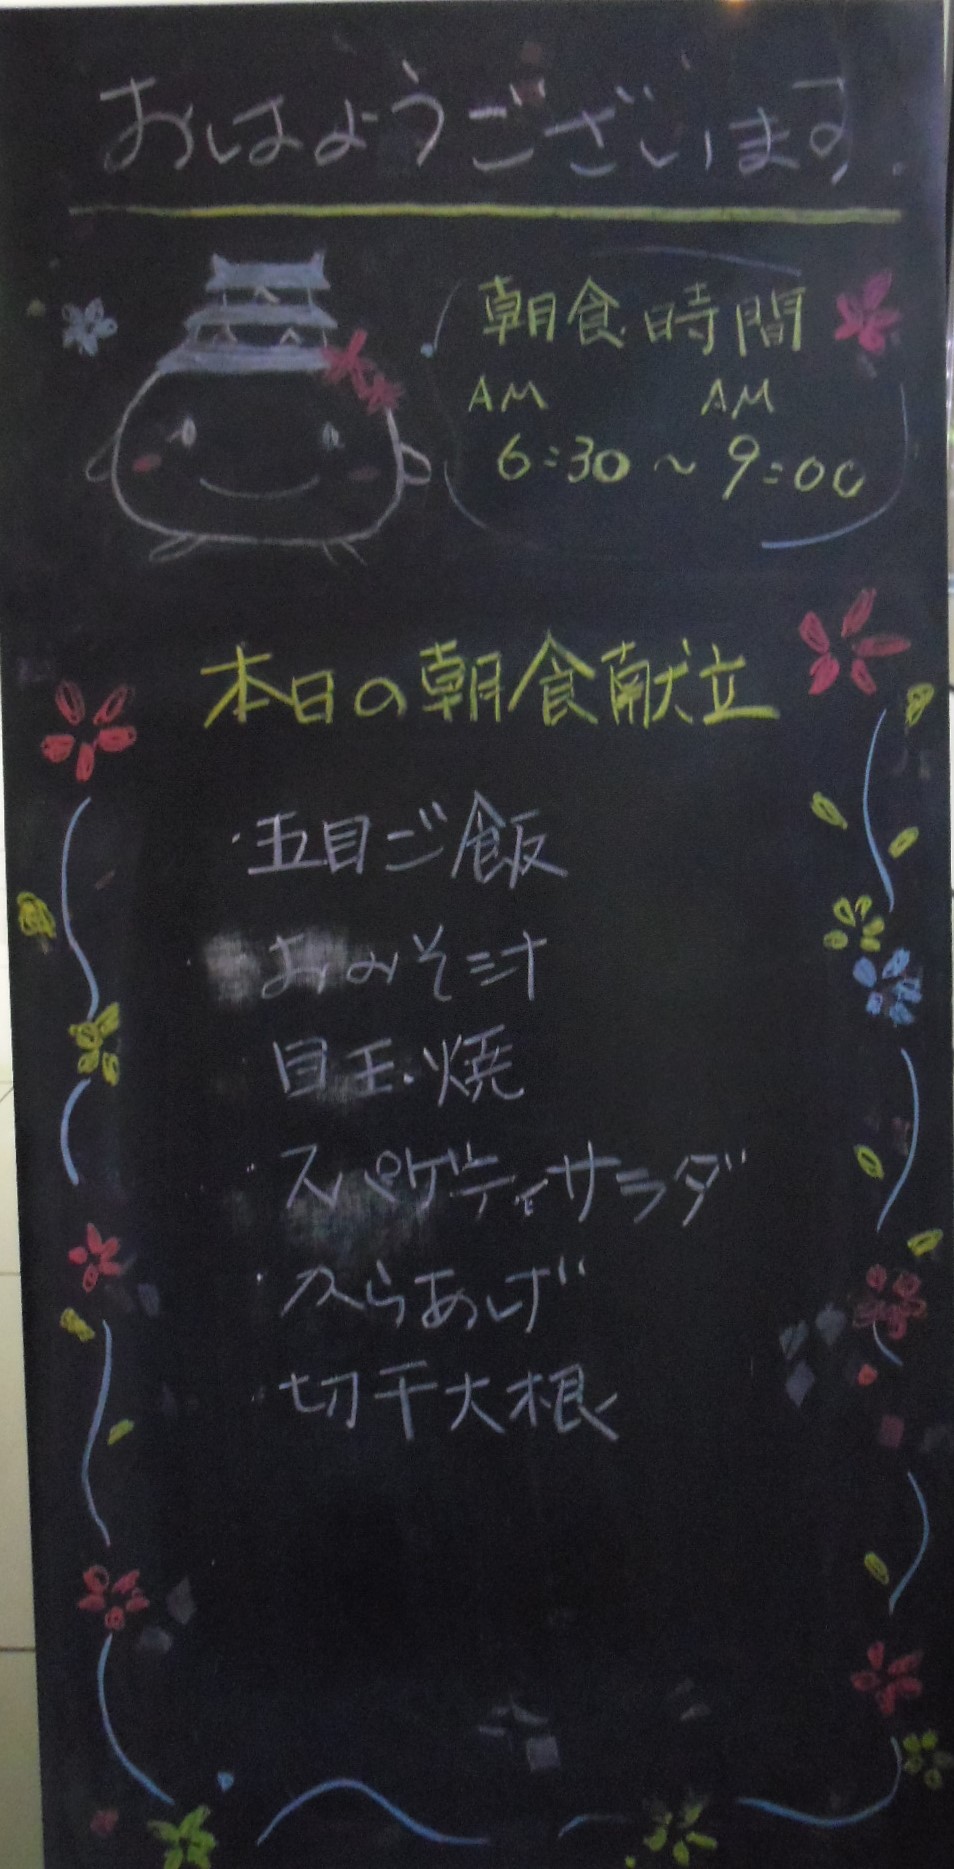 おはようございます.
朝食時間
AM AM
6:30 ~ 9:00
本日の朝食献立
・五目ご飯
・おみそ汁
・目玉焼
・スパゲティサラダ
・からあげ
・切干大根